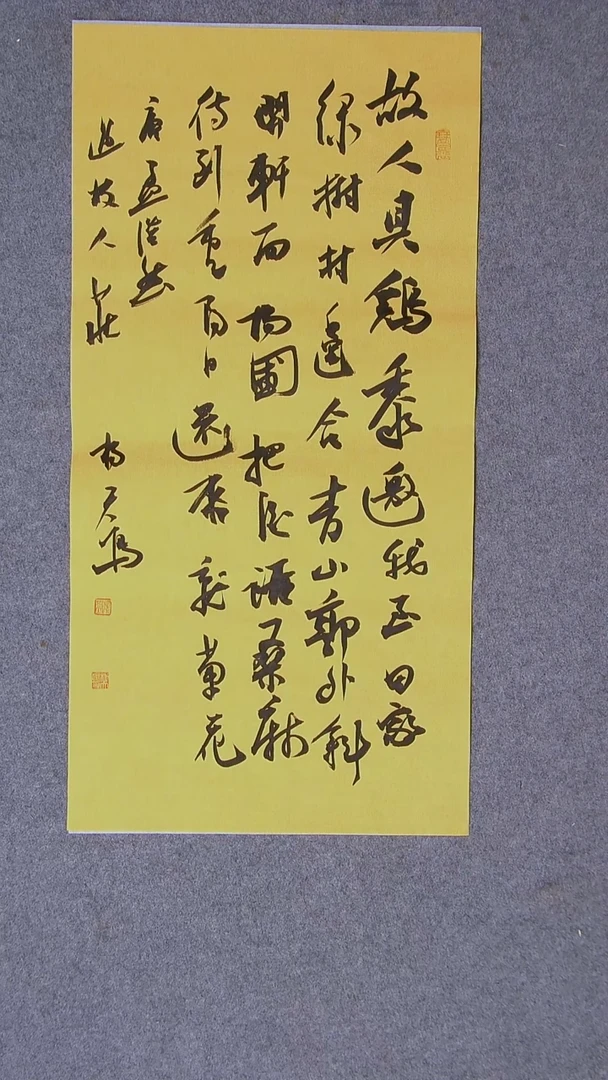 故人具鷄黍邀我至田家
綠樹村邊合青山郭外斜
開軒面場圃把酒話桑麻
待到重陽日還來就菊花
唐孟浩然
過故人莊